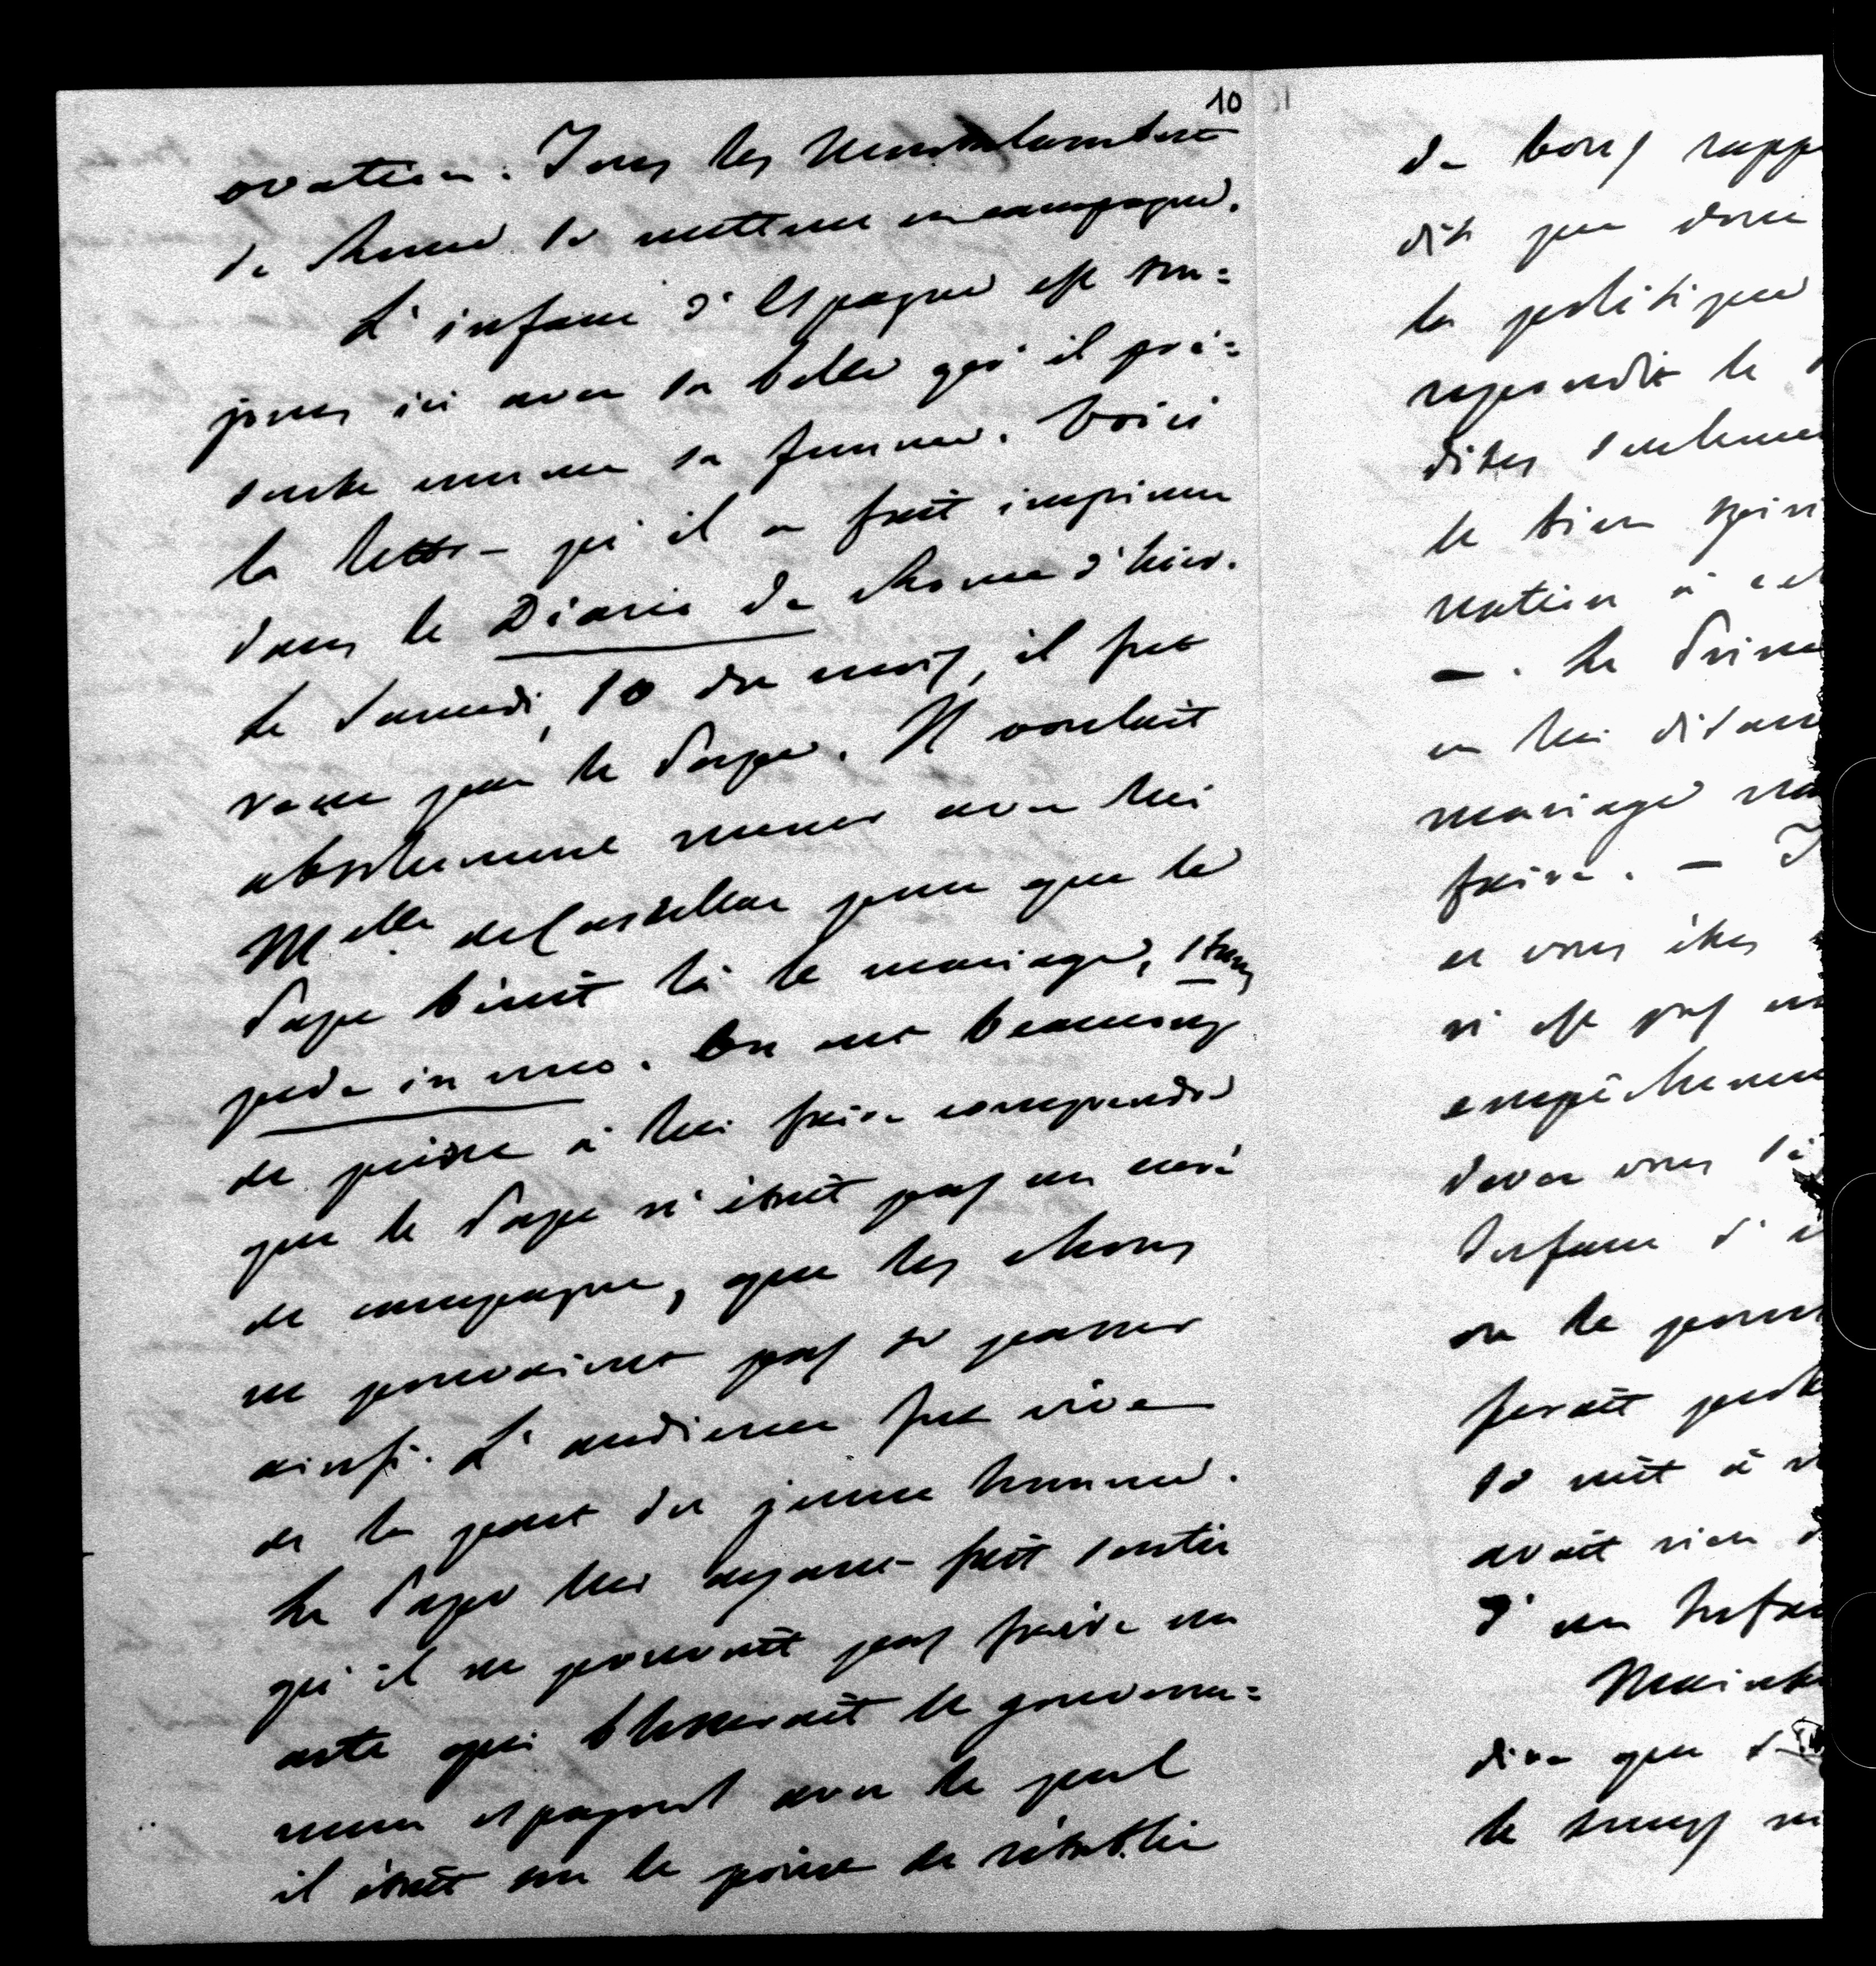 10
ovation. Tous les Montalembert
de Rome se mettent en campagne.
L'infant d'Espagne est tou=
jours ici avec sa belle qu'il pré=
sente comme sa femme. Voici
la lettre qu'il a fait imprimer
dans le Diario de Rome d'hier.
le Samedi, 10 du mois, il fut
reçu par le Pape. Il voulait
absolument mener avec lui
Melle de Castellar pour que le
Pape bénit là le mariage, stans
pede in uno. On eut beaucoup
de peine à lui faire comprendre
que le Pape n'était pas un curé
de campagne, que les choses
ne pouvaient pas se passer
ainsi. L'audience fut vive
de la part du jeune homme.
Le Pape lui ayant fait sentir
qu'il ne pouvait pas faire un
acte qui blesserait le gouverne=
ment espagnol avec le quel
il était sur le point de rétablir
de bons rapp
dit que
la politique
répondit le
dites seulement
le bien
nation à cet
— . Le Prince
en lui disant
mariage
faire. —
et vous êtes
n'est pas un
empêchement
devez vous
Infant d'
on le
ferait
se mit à
avait rien
d'un Infant
dire que
le temps